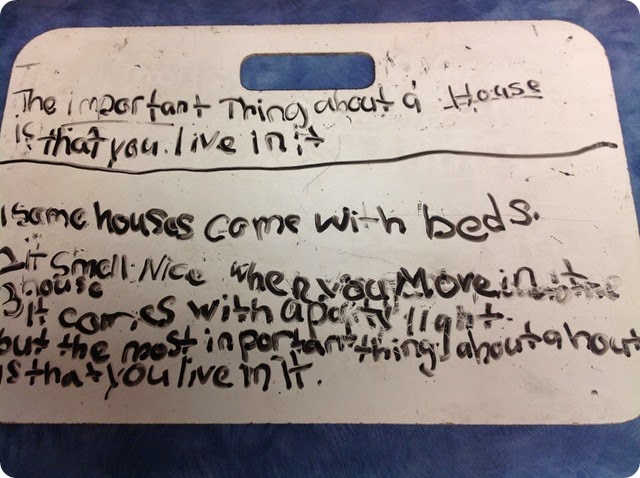 The important Thing about a House
is that you live in it
1 some houses come with beds.
2 It Small Nice when you Move in it
house
3 It comes with a party light.
but the most inportant thing about a hout
is that you live in It.